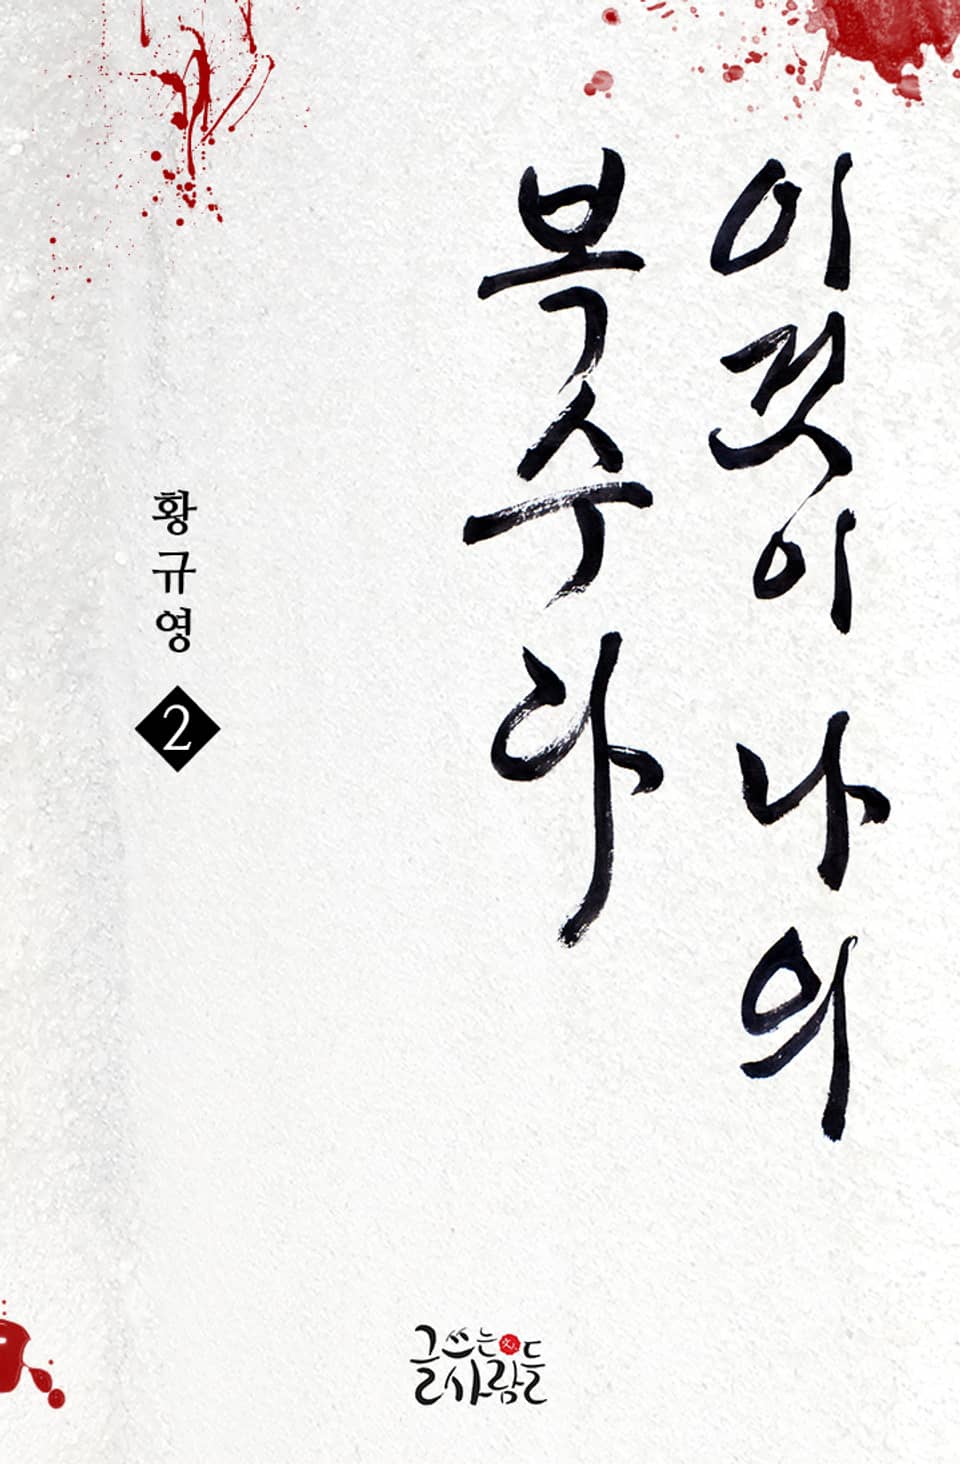 이것이 나의
복수다
황규영
2
글쓰는
사람들